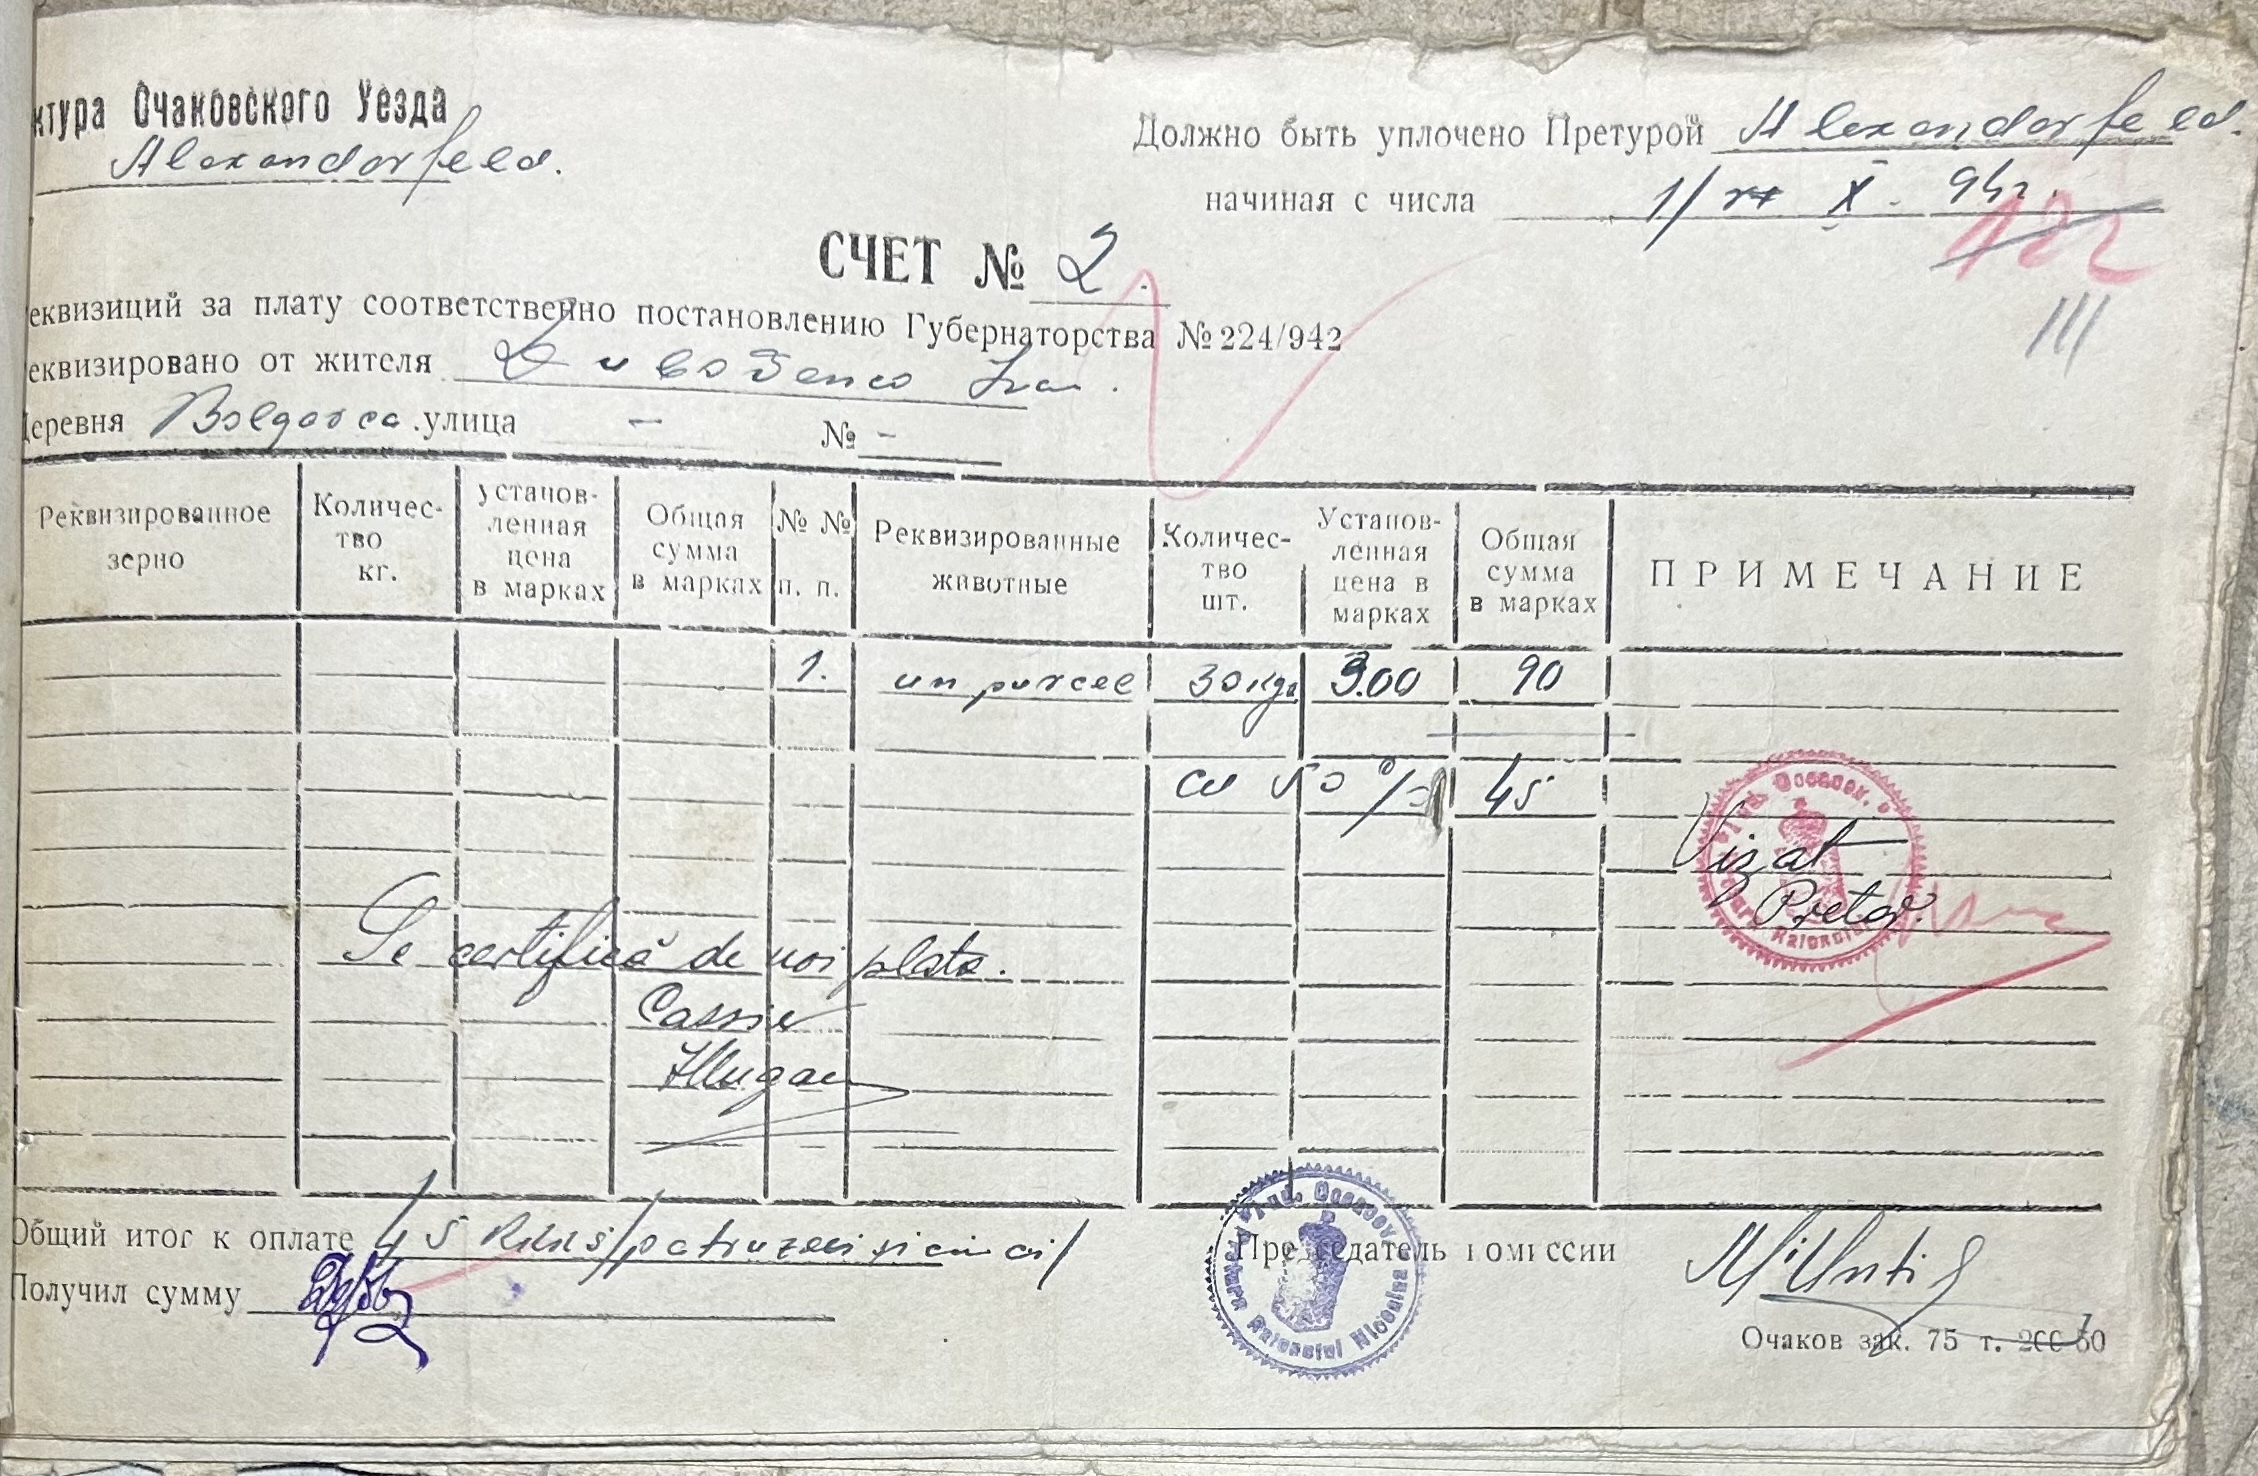 ктура Очаковского Уезда
Alexandorfeld.
Должно быть уплочено Претурой Alexandorfeld.
начиная с числа 1/ X. 942.
122
111
СЧЕТ № 2.
еквизиций за плату соответственно постановлению Губернаторства № 224/942
еквизировано от жителя Ivan.
Деревня Bolgarca. улица — № —
Реквизированное зерно
Количес-тво кг.
Установ-ленная цена в марках
Общая сумма в марках
№ № п. п.
Реквизированные животные
Количес-тво шт.
Установ-ленная цена в марках
Общая сумма в марках
ПРИМЕЧАНИЕ
1. un purcel 30 kgr 3.00 90
cu 50 % 45
Vizat
Pretor.
Jud. Oceacov.
Se certifică de noi plata.
Casier
Общий итог к оплате 45 RKKS /patruzeci și cinci/
Получил сумму
Председатель комиссии
Jud. Oceacov
Pretura Raionului Nicolaina
Очаков зак. 75 т. 200 50